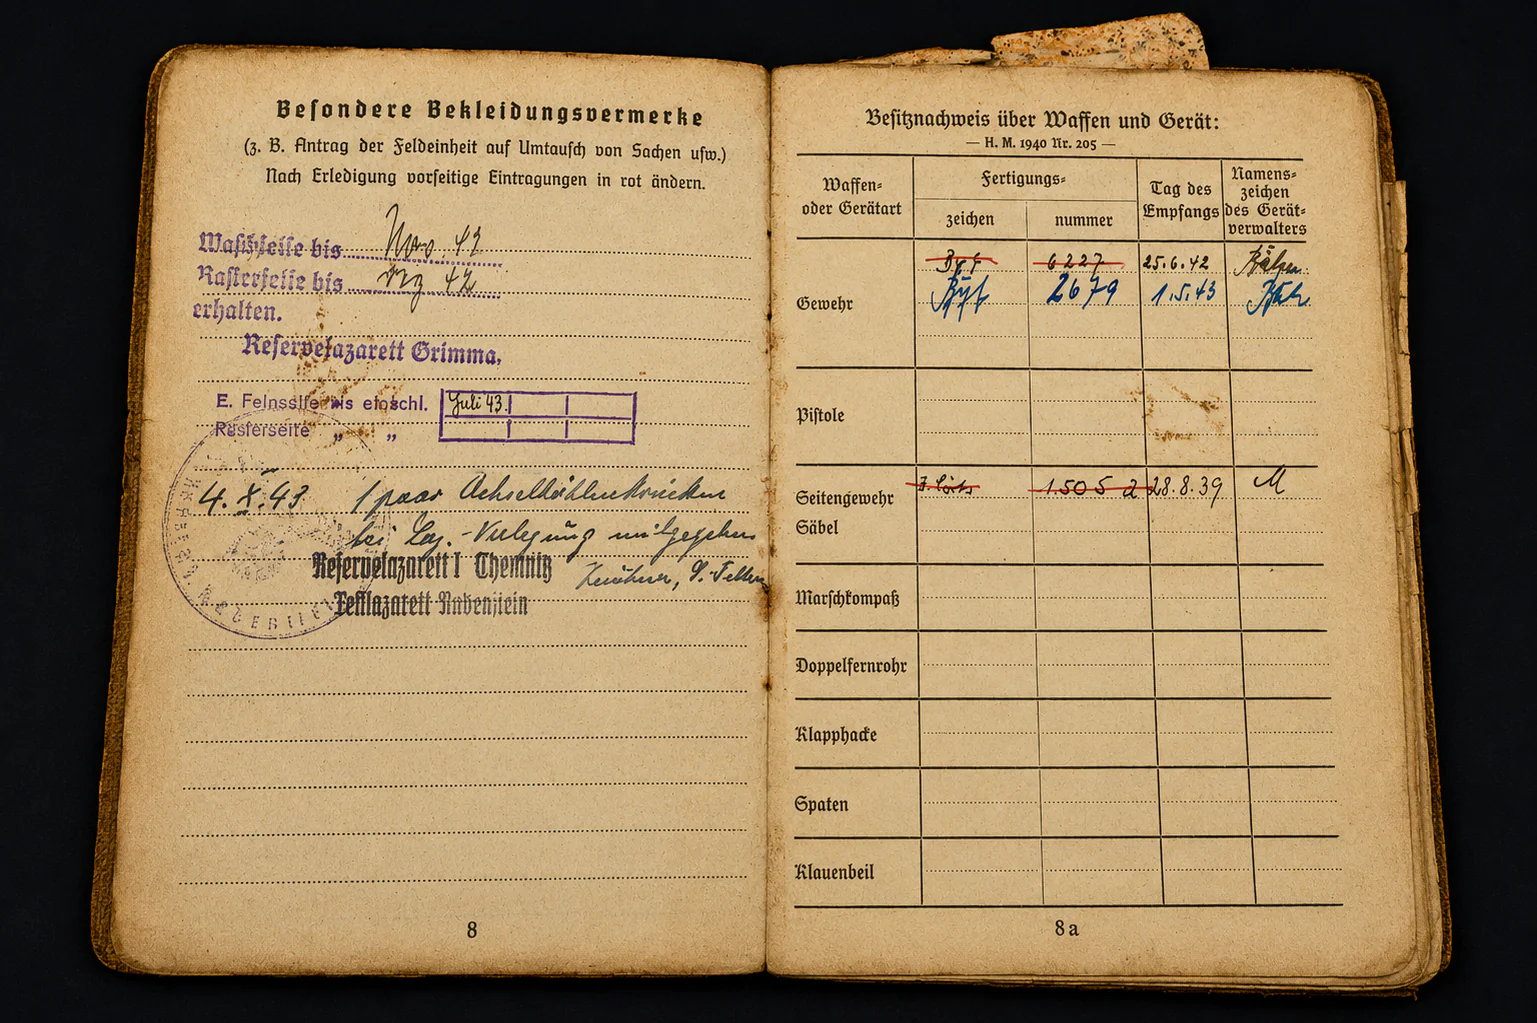 Besondere Bekleidungsvermerke
(z. B. Antrag der Feldeinheit auf Umtausch von Sachen usw.)
Nach Erledigung vorseitige Eintragungen in rot ändern.
bis Nov. 43
bis 42
erhalten.
Reservelazarett Grimma,
E. bis einschl. Juli 43.
Rasierseife " "
4. X. 43 1 paar Achselhöhlenkrücken
bei Laz.-Verlegung mitgegeben
Reservelazarett I Chemnitz
Teillazarett Rabenstein
8
Besitznachweis über Waffen und Gerät:
— H. M. 1940 Nr. 205 —
Waffen- oder Gerätart
Fertigungs-
zeichen
nummer
Tag des Empfangs
Namens- zeichen des Gerät- verwalters
Gewehr
6227 25.6.42
2679 1.5.43
Pistole
Seitengewehr 1505 a 28.8.39 M
Säbel
Marschkompaß
Doppelfernrohr
Klapphacke
Spaten
Klauenbeil
8a